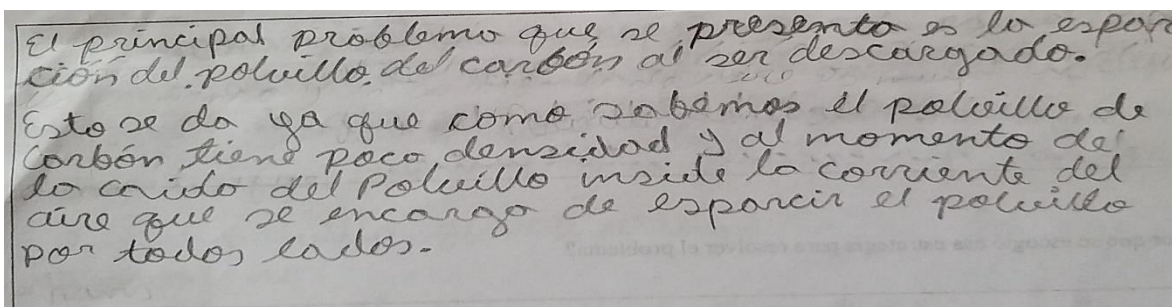 El principal problema que se presenta es la espar
ción del polvillo del carbón al ser descargado.
Esto se da ya que como sabemos el polvillo de
carbón tiene poca densidad y al momento de
la caida del Polvillo inside la corriente del
aire que se encarga de esparcir el polvillo
por todos lados.